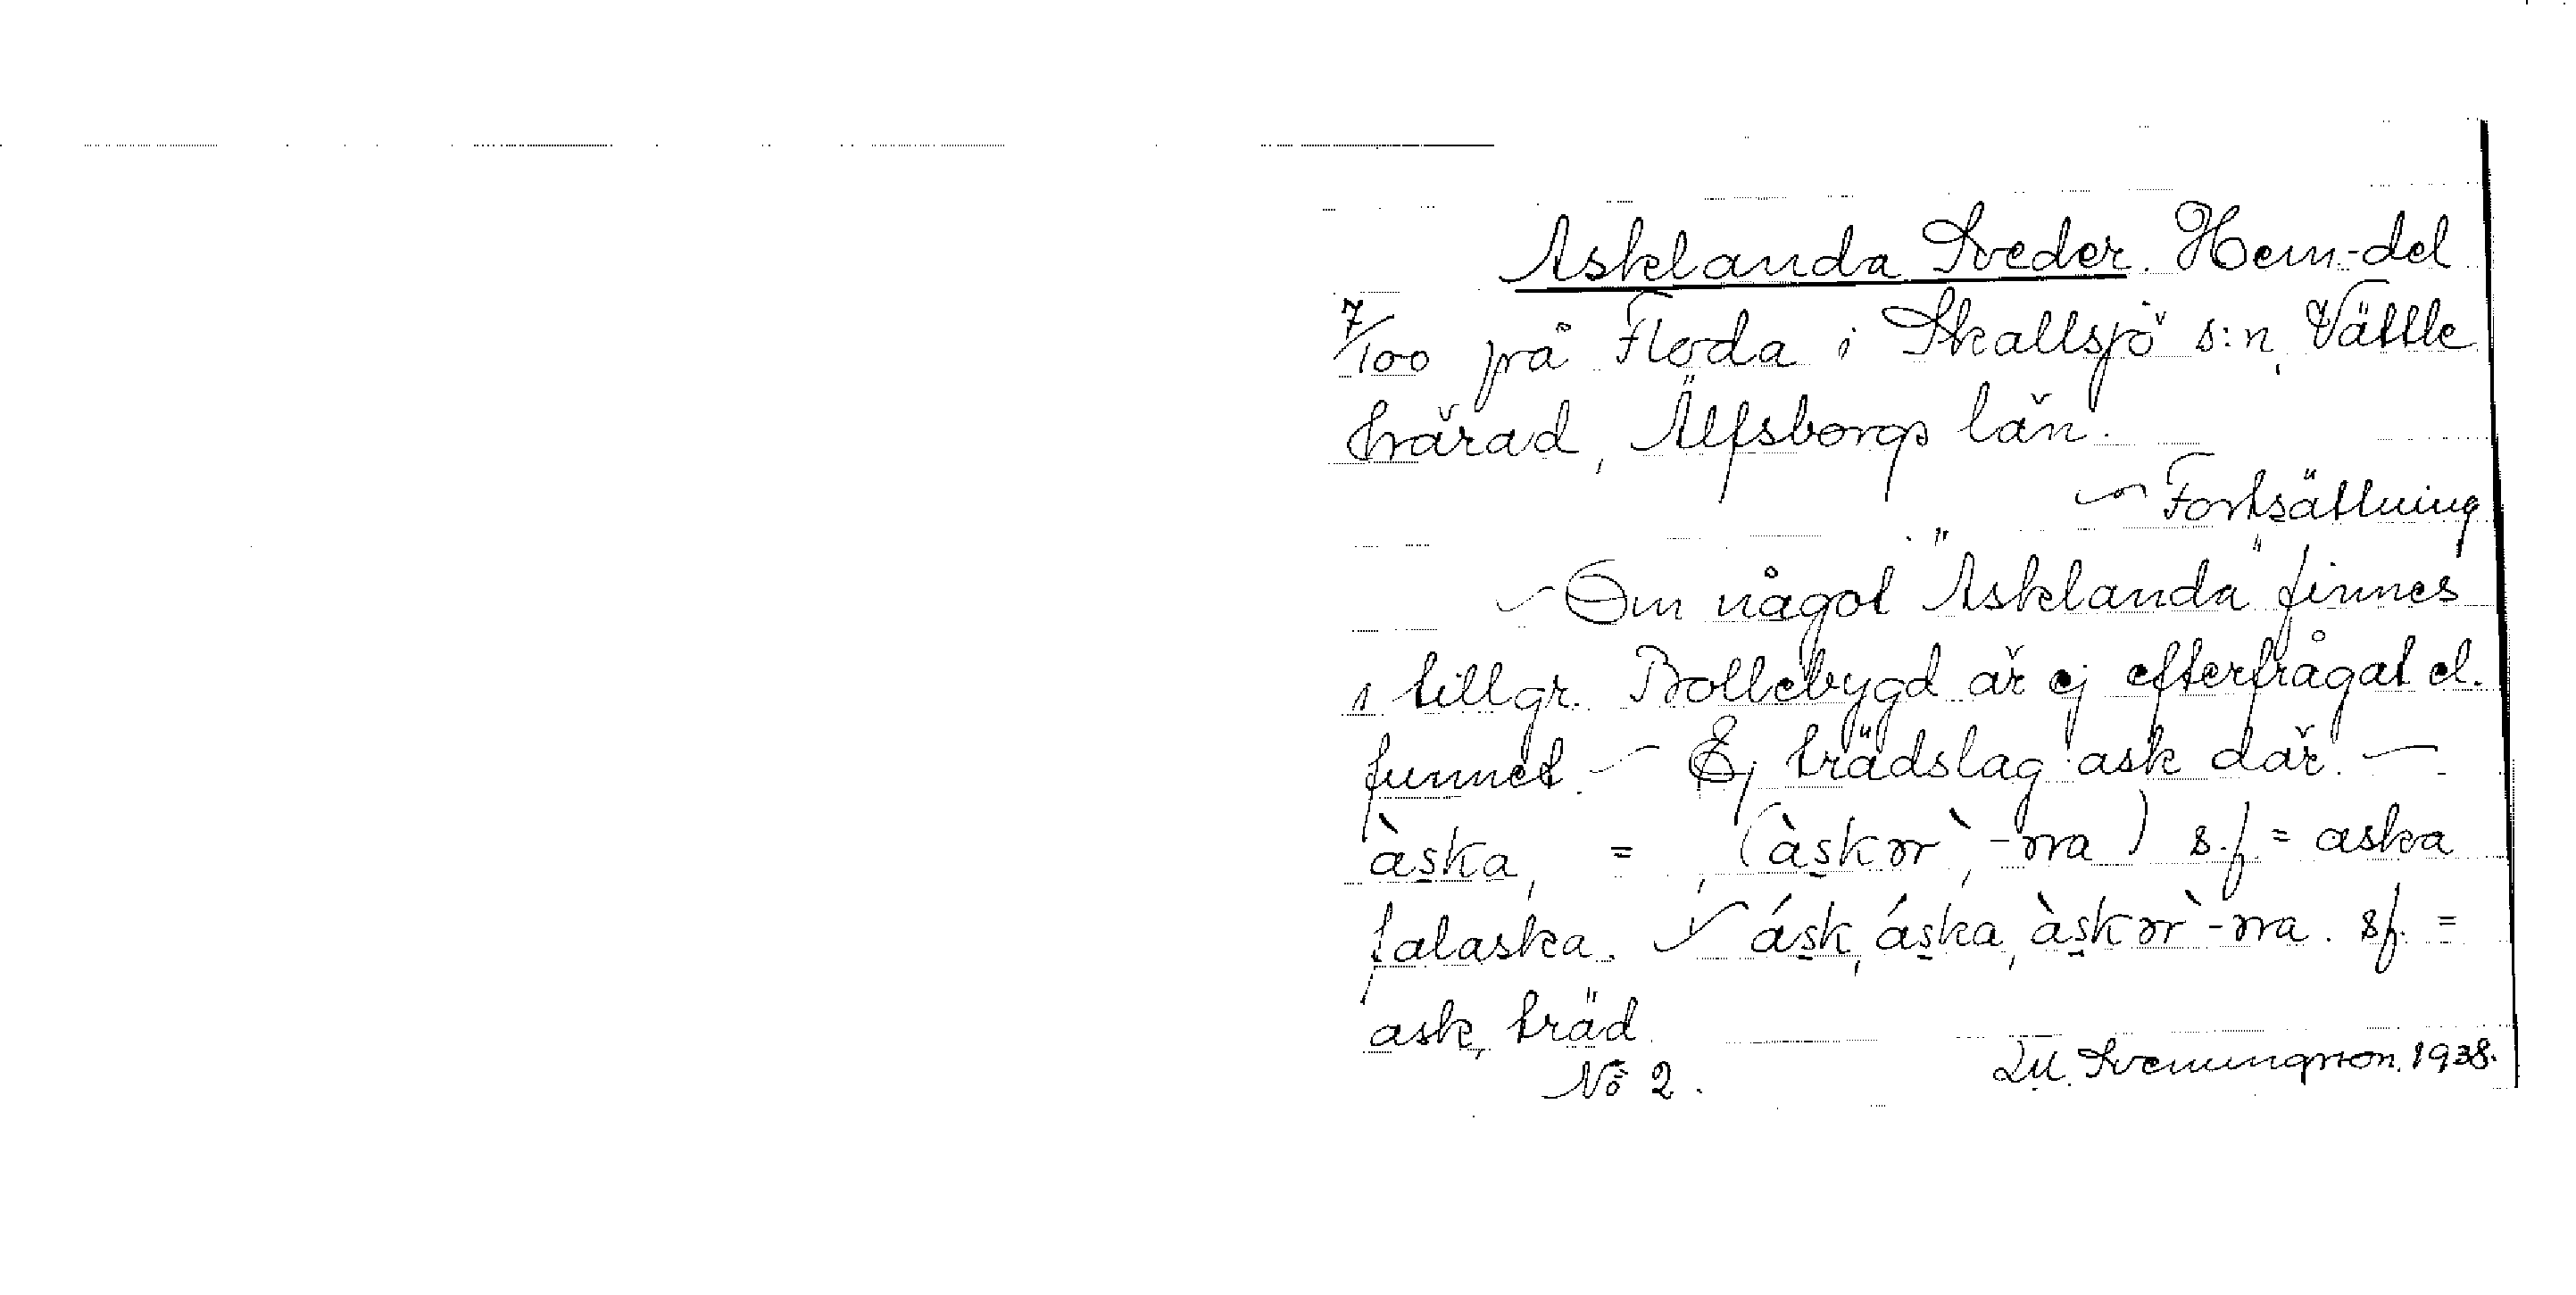 Asklanda Sveder. Hem.-del
7/100 på Floda i Skallsjö s:n, Vättle
härad, Älfsborgs län.
~ Fortsättning
~ Om något "Asklanda" finnes
i tillgr. Bollebygd är ej efterfrågat el.
funnet. ~ Ej trädslag ask där. ~
àska, = , (àskơr`, -ơra) s.f. = aska
falaska. ~ ásk, áska, àskơr` -ơra. sf. =
ask, träd
No 2. Svenungsson. 1938.